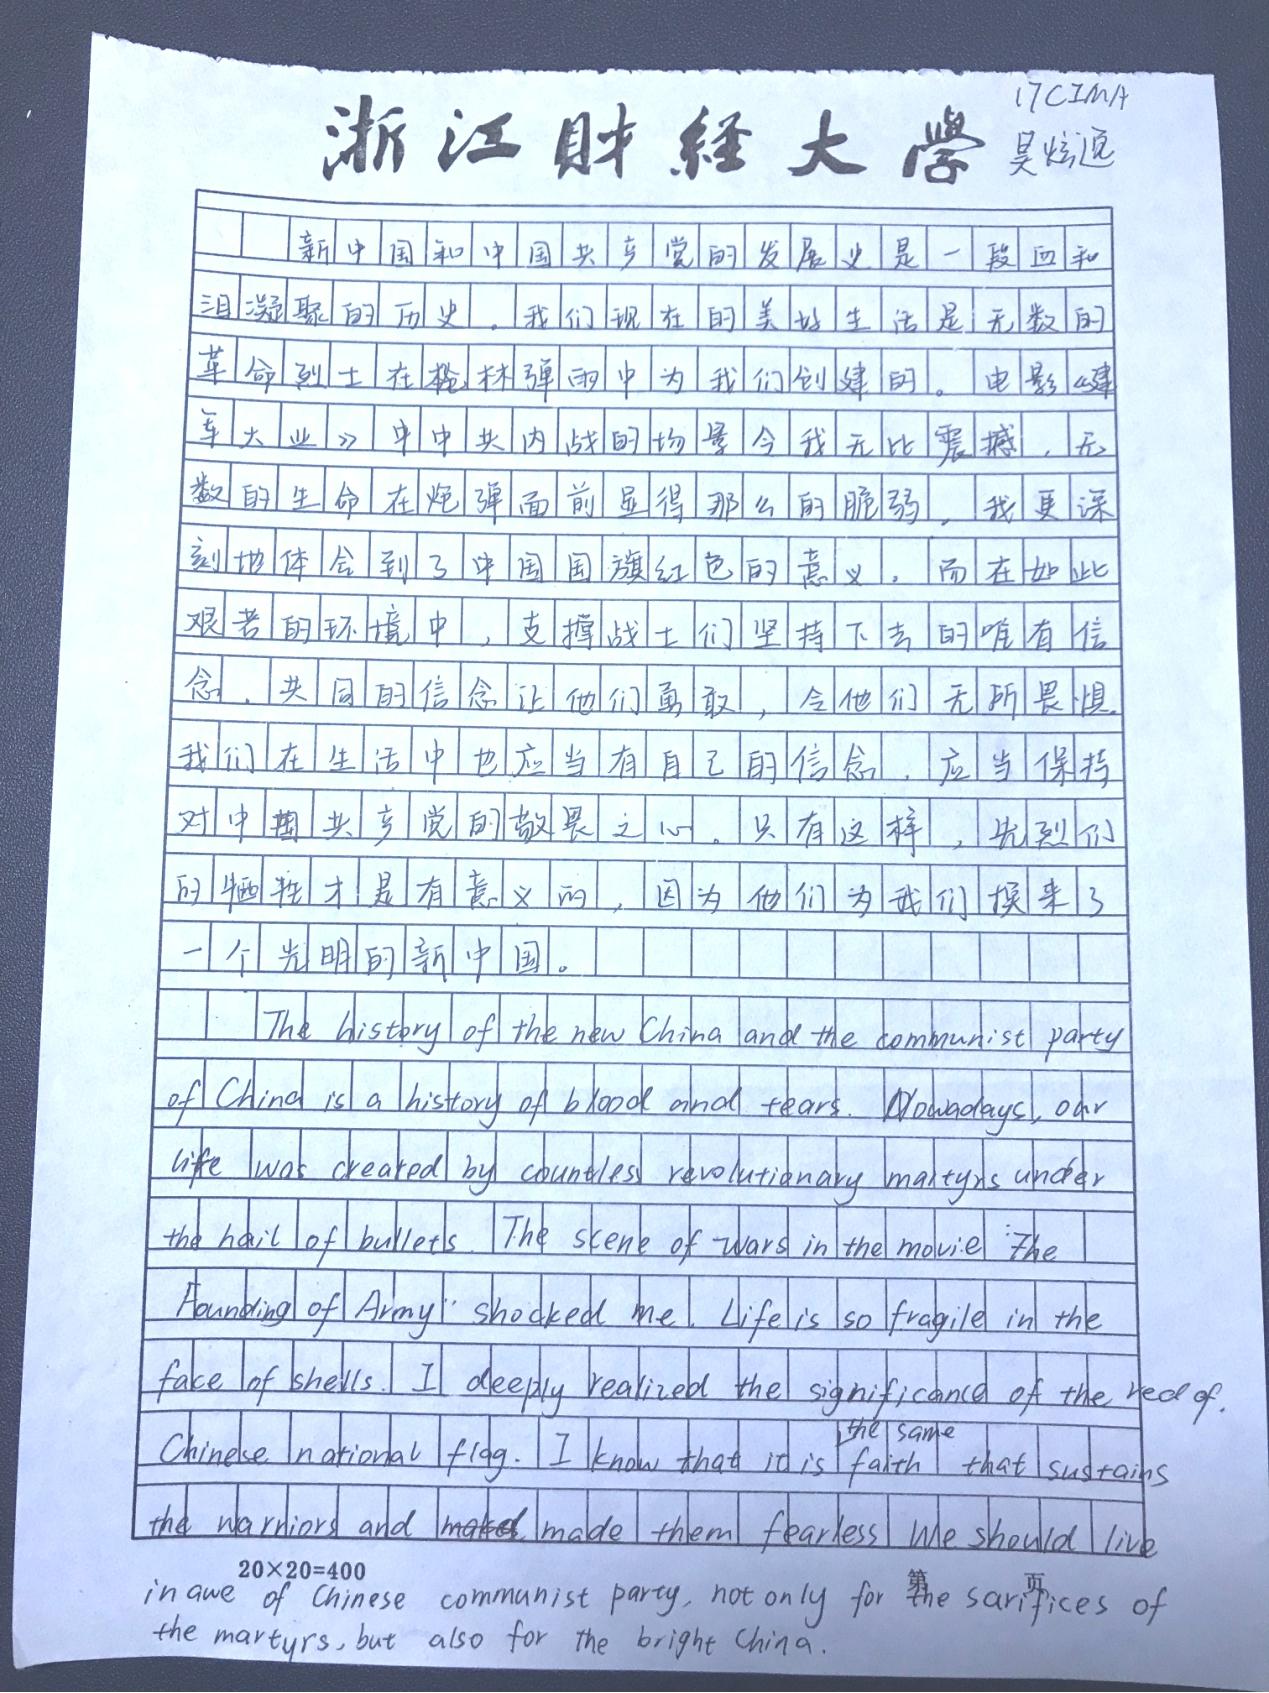 17CIMA
浙江财经大学
吴炫逸
新中国和中国共产党的发展史是一段血和
泪凝聚的历史，我们现在的美好生活是无数的
革命烈士在枪林弹雨中为我们创建的。电影《建
军大业》中中共内战的场景令我无比震撼，无
数的生命在炮弹面前显得那么的脆弱，我更深
刻地体会到了中国国旗红色的意义，而在如此
艰苦的环境中，支撑战士们坚持下去的唯有信
念，共同的信念让他们勇敢，令他们无所畏惧，
我们在生活中也应当有自己的信念，应当保持
对中国共产党的敬畏之心。只有这样，先烈们
的牺牲才是有意义的，因为他们为我们换来了
一个光明的新中国。
The history of the new China and the communist party
of China is a history of blood and tears. Nowadays, our
life was created by countless revolutionary martyrs under
the hail of bullets. The scene of wars in the movie "The
Founding of Army" shocked me. Life is so fragile in the
face of shells. I deeply realized the significance of the red of.
Chinese national flag. I know that it is the same faith that sustains
the warriors and made them fearless We should live
20×20=400
第 页
in awe of Chinese communist party, not only for the sarifices of
the martyrs, but also for the bright China.